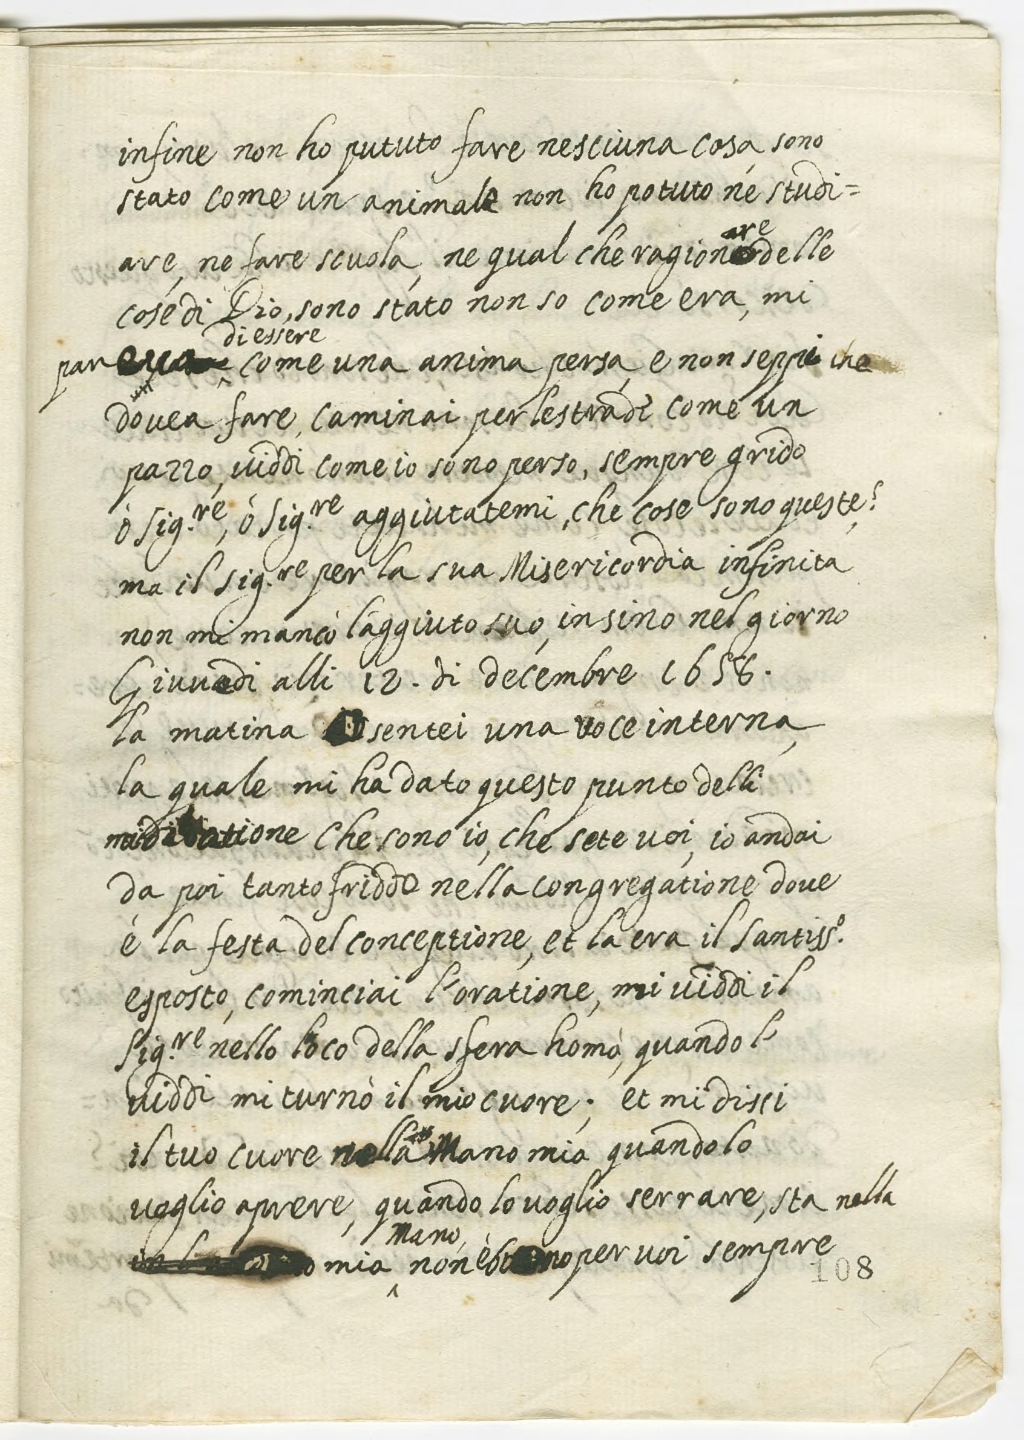 infine non ho pututo fare nesciuna cosa, sono
stato come un animale non ho potuto ne studi=
are, ne fare scuola, ne qual che ragionare delle
cose di Dio, sono stato non so come era, mi
di essere
pareva come una anima persa, e non seppi che
dovea fare, caminai per le strade come un
pazzo, viddi come io sono perso, sempre grido
ò sig.re, ò sig.re aggiutatemi, che cose sono queste?
ma il sig.re per la sua Misericordia infinita
non mi mancò l'aggiuto suo, insino nel giorno
Giuvedi alli 12. di decembre 1658.
la matina sentei una voce interna,
la quale mi ha dato questo punto delli
miditatione che sono io, che sete voi, io andai
da poi tanto friddo nella congregatione dove
è la festa del conceptione, et la era il Santiss.o
esposto, cominciai l'oratione, mi viddi il
sig.re nello loco della sfera homo, quando l'
viddi mi turnò il mio cuore; et mi disci
il tuo cuore nella Mano mia quando lo
voglio aprere, quando lo voglio serrare, sta nella
Mano,
mia non è buono per voi sempre
108